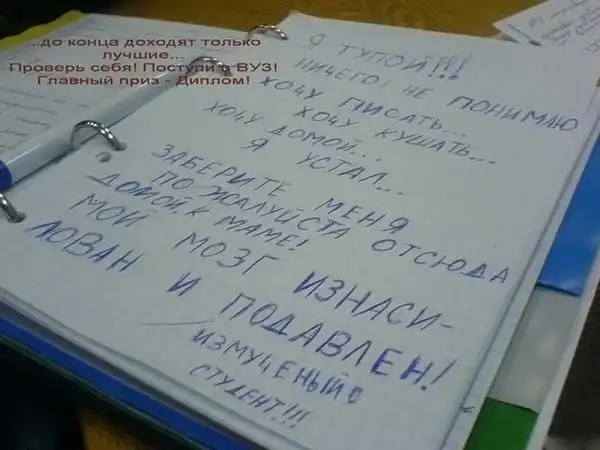 ...до конца доходят только
лучшие...
Проверь себя! Поступи в ВУЗ!
Главный приз - Диплом!
Я ТУПОЙ!!!
НИЧЕГО! НЕ ПОНИМАЮ
ХОЧУ ПИСАТЬ...
ХОЧУ КУШАТЬ...
ХОЧУ ДОМОЙ...
Я УСТАЛ...
ЗАБЕРИТЕ МЕНЯ
ПОЖАЛУЙСТА ОТСЮДА
ДОМОЙ, К МАМЕ!
МОЙ МОЗГ ИЗНАСИ-
ЛОВАН И ПОДАВЛЕН!
ИЗМУЧЕНЫЙ
СТУДЕНТ!!!